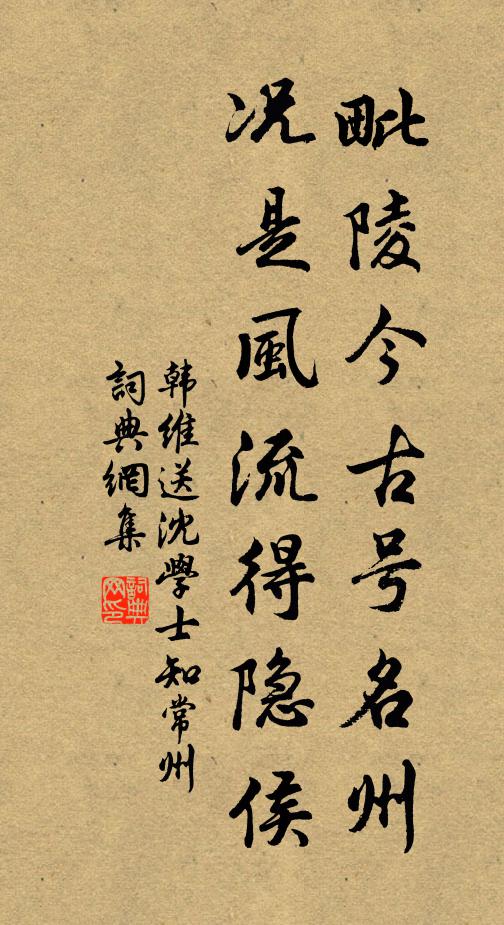 毗陵今古号名州
况是風流得隐侯
韩維送沈學士知常州
詞典網集
詞典網印